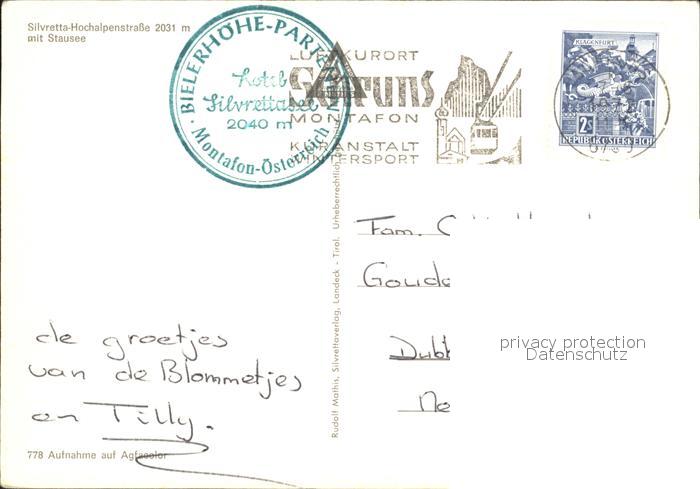 Silvretta-Hochalpenstraße 2031 m
mit Stausee
BIELERHÖHE-PARTENEN
Hotel
Silvrettasee
2040 m
Montafon-Österreich
LUFTKURORT
Schruns
MONTAFON
KURANSTALT
WINTERSPORT
KLAGENFURT
2S
REPUBLIK ÖSTERREICH
Rudolf Mathis, Silvrettaverlag, Landeck - Tirol. Urheberrechtlich
Fam.
Gouda
privacy protection
Datenschutz
de groetjes
van de Blommetjes
en Tilly.
778 Aufnahme auf Agfacolor